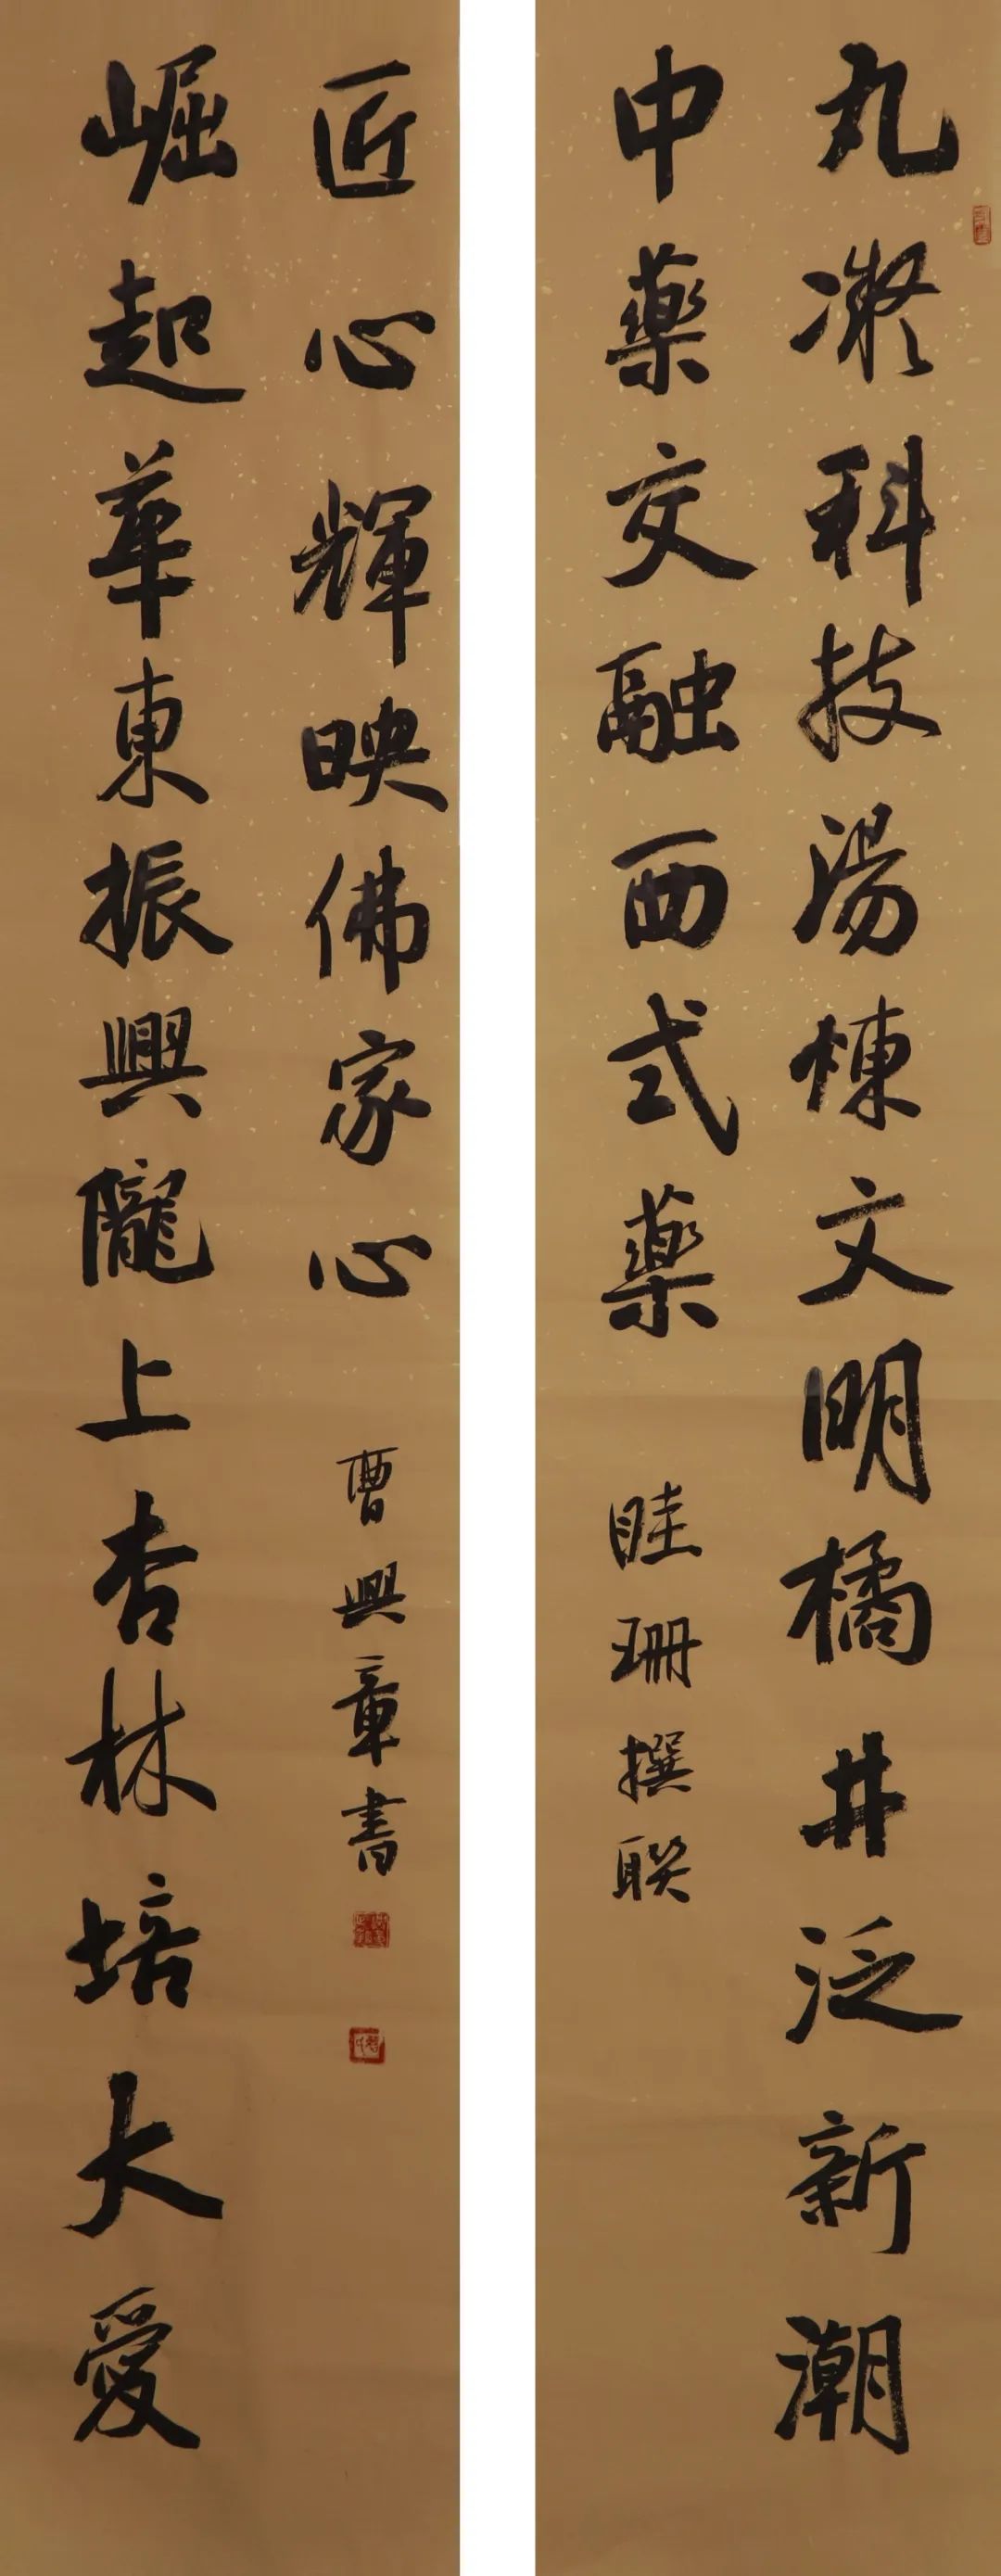 丸凝科技湯煉文明橘井泛新潮
中藥交融西式藥
眭珊撰聯
崛起華東振興隴上杏林培大愛
匠心輝映佛家心
曹興章書